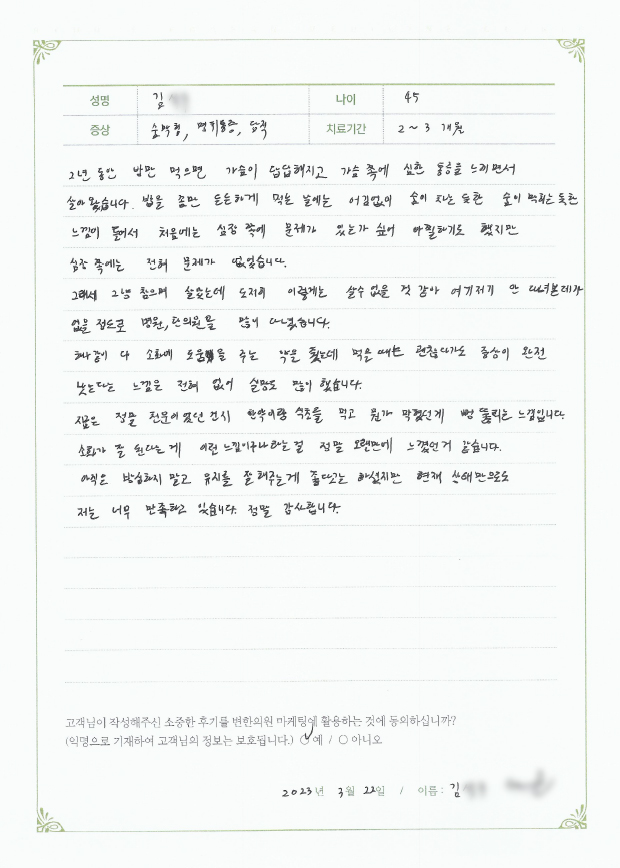 성명 김 나이 45
증상 숨막힘, 명치통증, 담적 치료기간 2~3 개월
2년 동안 밥만 먹으면 가슴이 답답해지고 가슴 쪽에 심한 통증을 느끼면서
살아 왔습니다. 밥을 좀만 든든하게 먹는 날에는 어김없이 숨이 차는 듯한 숨이 막히는 듯한
느낌이 들어서 처음에는 심장 쪽에 문제가 있는가 싶어 아찔하기도 했지만
심장 쪽에는 전혀 문제가 없었습니다.
그래서 2년 참으며 살았는데 도저히 이렇게는 살수 없을 것 같아 여기저기 안 다녀본데가
없을 정도로 병원, 한의원을 많이 다녔습니다.
하나같이 다 소화에 도움을 주는 약을 줬는데 먹을때는 괜찮다가도 증상이 완전
낫는다는 느낌은 전혀 없어 실망도 많이 했습니다.
지금은 정말 전문이었던 건지 한약이랑 숙초를 먹고 뭔가 막혔던게 뻥 뚫리는 느낌입니다.
소화가 잘 된다는 게 이런 느낌이구나 라는 걸 정말 오랜만에 느꼈던거 같습니다.
아직은 방심하지 말고 유지를 잘 해주는게 좋다고는 하셨지만 현재 상태만으로도
저는 너무 만족하고 있습니다. 정말 감사합니다.
고객님이 작성해주신 소중한 후기를 변한의원 마케팅에 활용하는 것에 동의하십니까?
(익명으로 기재하여 고객님의 정보는 보호됩니다.) ○ 예 / ○ 아니오
2023년 3월 22일 / 이름 : 김